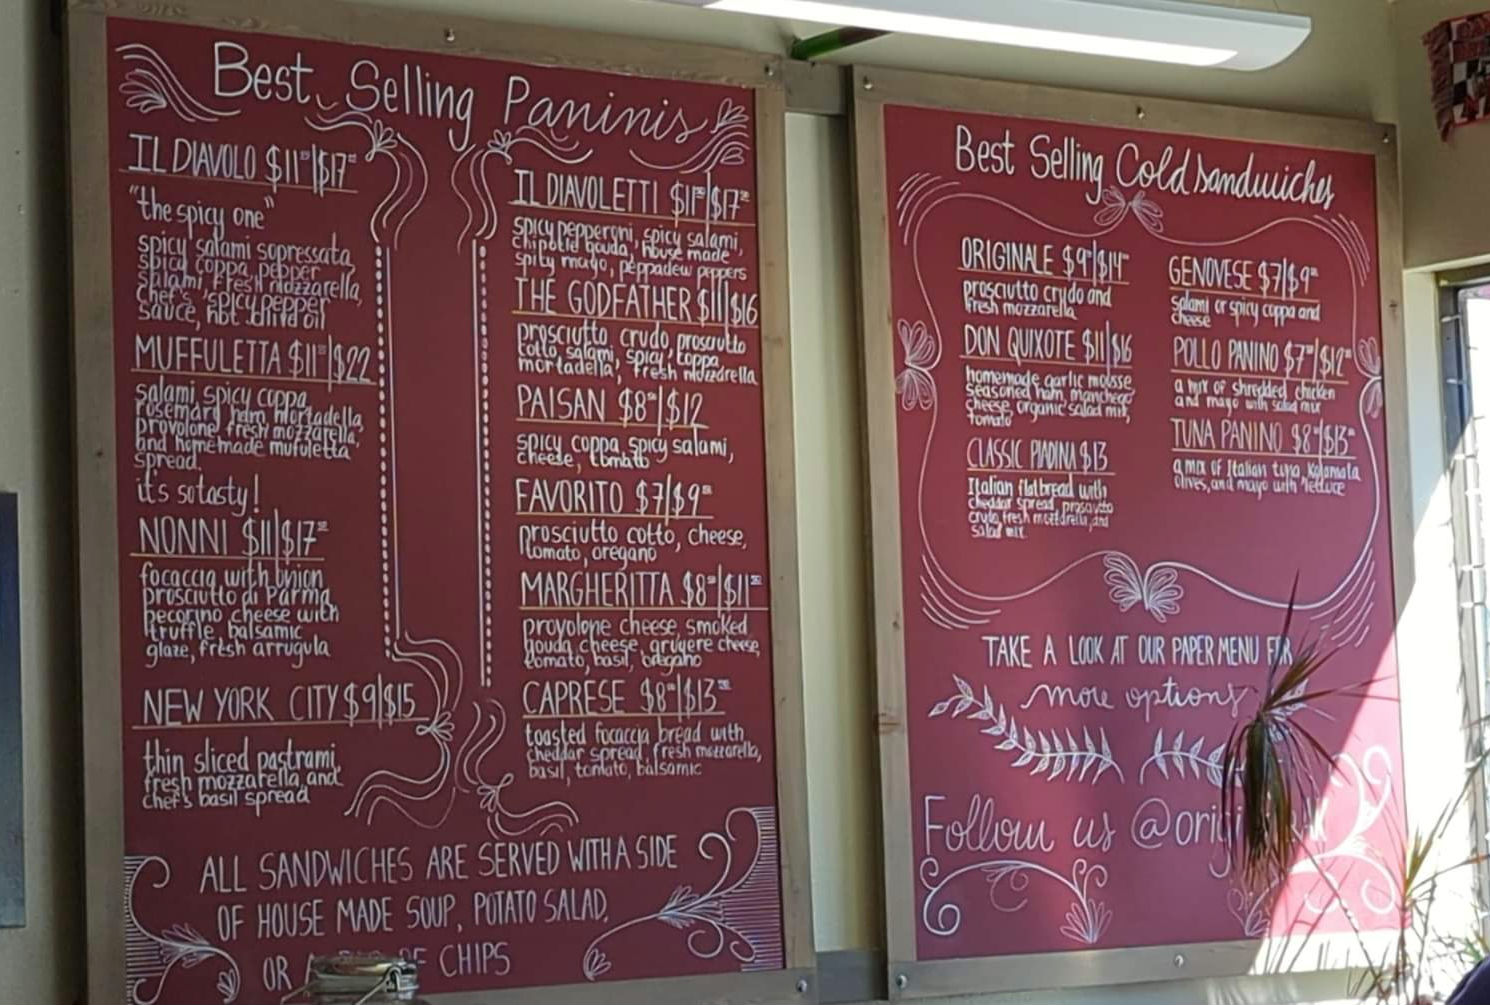 Best Selling Paninis
IL DIAVOLO $11⁵⁰|$17⁵⁰
"the spicy one"
spicy salami sopressata,
spicy coppa, pepper
salami, fresh mozzarella,
Chef's spicy pepper
sauce, hot chili oil
MUFFULETTA $11⁵⁰|$22
salami, spicy coppa,
rosemary ham, mortadella,
provolone, fresh mozzarella,
and homemade mufuletta
spread.
it's so tasty!
NONNI $11|$17⁵⁰
focaccia with onion
prosciutto di Parma
pecorino cheese with
truffle, balsamic
glaze, fresh arrugula
NEW YORK CITY $9|$15
thin sliced pastrami,
fresh mozzarella, and
chef's basil spread
IL DIAVOLETTI $11⁵⁰|$17⁵⁰
spicy pepperoni, spicy salami,
chipotle gouda, house made
spicy mayo, peppadew peppers
THE GODFATHER $11|$16
prosciutto crudo, prosciutto
cotto, salami, spicy coppa
mortadella, fresh mozzarella
PAISAN $8⁵⁰|$12
spicy coppa, spicy salami,
cheese, tomato
FAVORITO $7|$9⁵⁰
prosciutto cotto, cheese,
tomato, oregano
MARGHERITTA $8⁵⁰|$11⁵⁰
provolone cheese, smoked
gouda cheese, gruyere cheese,
tomato, basil, oregano
CAPRESE $8⁵⁰|$13⁵⁰
toasted focaccia bread with
cheddar spread, fresh mozzarella,
basil, tomato, balsamic
ALL SANDWICHES ARE SERVED WITH A SIDE
OF HOUSE MADE SOUP, POTATO SALAD,
OR A CHIPS
Best Selling Cold sandwiches
ORIGINALE $9⁵⁰|$14⁵⁰
prosciutto crudo and
fresh mozzarella
DON QUIXOTE $11|$16
homemade garlic mousse,
seasoned ham, manchego
cheese, organic salad mix,
tomato
CLASSIC PIADINA $13
Italian flatbread with
cheddar spread, prosciutto
crudo, fresh mozzarella, and
salad mix.
GENOVESE $7|$9⁵⁰
salami or spicy coppa and
cheese
POLLO PANINO $7⁵⁰|$12⁵⁰
a mix of shredded chicken
and mayo with salad mix
TUNA PANINO $8⁵⁰|$13⁵⁰
a mix of Italian tuna, Kalamata
olives, and mayo with lettuce
TAKE A LOOK AT OUR PAPER MENU FOR
more options
Follow us